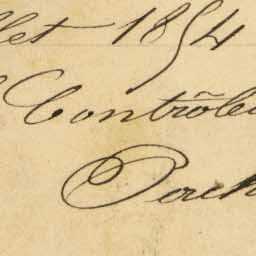 llet 1854
Contrôle
Poch